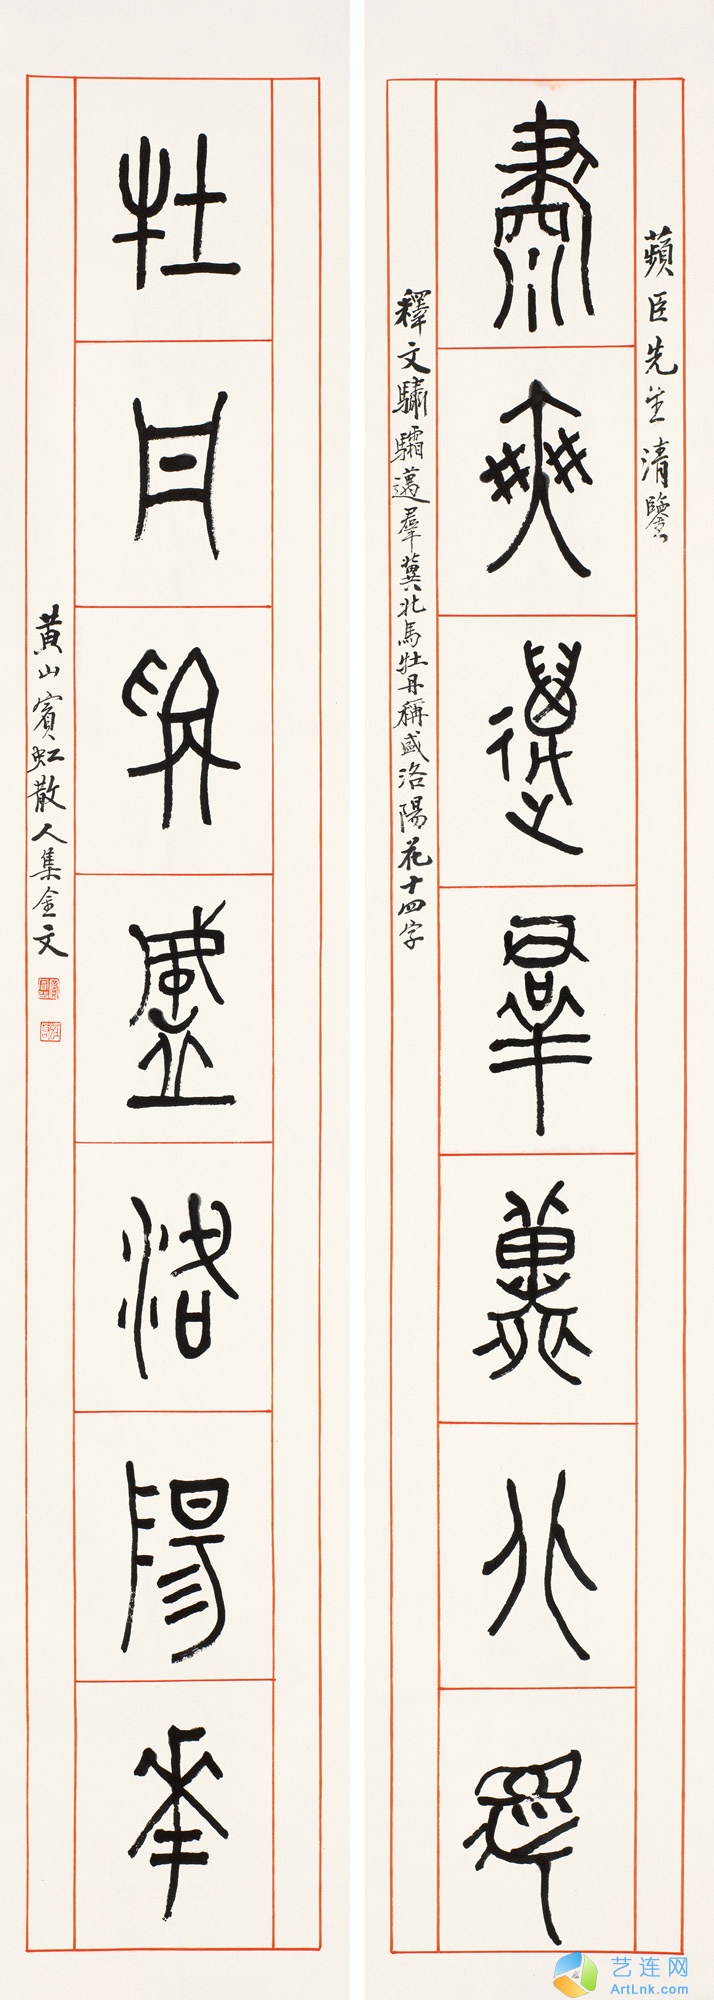 蘋臣先生清鑒
肅爽邁羣冀北馬
釋文驌驦邁羣冀北馬牡丹稱盛洛陽花十四字
牡丹爯盛洛陽華
黃山賓虹散人集金文
艺连网
ArtLnk.com